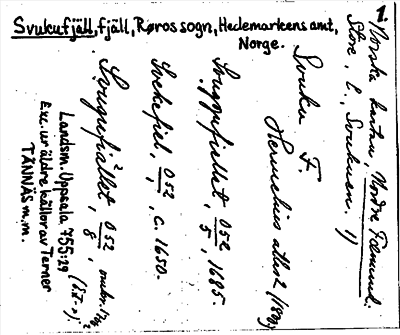 Svukufjäll, fjäll, Røros sogn, Hedemarkens amt,
Norge.
1.
Norska kartan, Nordre Fæmund.
Store, L., Svukuen. 1)
Svuku F.
Hermelins atlas
Svuggufiellet, 052/5, 1685.
Svekefiel, 052/1, c. 1650.
Svugufiället, 052/8,
Landsm. Uppsala 755:29
Exc. ur äldre källor av Turner
TÄNNÄS m.m.